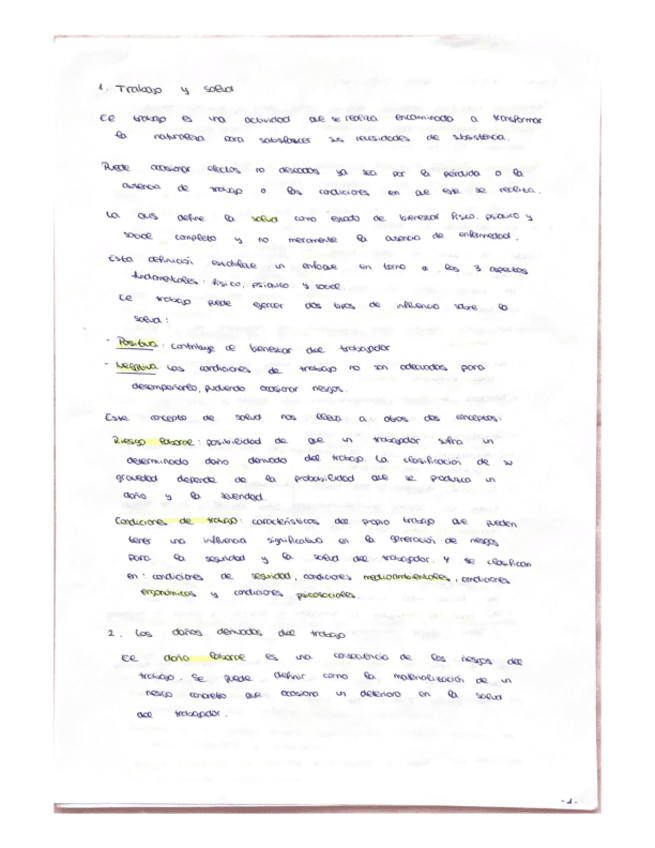 1. Trabajo y salud
El trabajo es una actividad que se realiza encaminada a transformar
la naturaleza para satisfacer sus necesidades de subsistencia.
Puede ocasionar efectos no deseados ya sea por la pérdida o la
ausencia de trabajo o las condiciones en que este se realiza.
La OMS define la salud como estado de bienestar físico, psíquico y
social completo y no meramente la ausencia de enfermedad.
Esta definición establece un enfoque en torno a los 3 aspectos
fundamentales: físico, psíquico y social.
El trabajo puede ejercer dos tipos de influencia sobre la
salud:
- Positiva: contribuye al bienestar del trabajador
- Negativa Las condiciones de trabajo no son adecuadas para
desempeñarlo, pudiendo ocasionar riesgos.
Este concepto de salud nos lleva a otros dos conceptos:
Riesgo laboral: posibilidad de que un trabajador sufra un
determinado daño derivado del trabajo. La clasificación de su
gravedad depende de la probabilidad que se produzca un
daño y la severidad.
Condiciones de trabajo: características del propio trabajo que pueden
tener una influencia significativa en la generación de riesgos
para la seguridad y la salud del trabajador. Y se clasifican
en: condiciones de seguridad, condiciones medioambientales, condiciones
ergonómicas y condiciones psicosociales.
2. Los daños derivados del trabajo
El daño laboral es una consecuencia de los riesgos del
trabajo. Se puede definir como la materialización de un
riesgo concreto que ocasiona un deterioro en la salud
del trabajador.
-1-